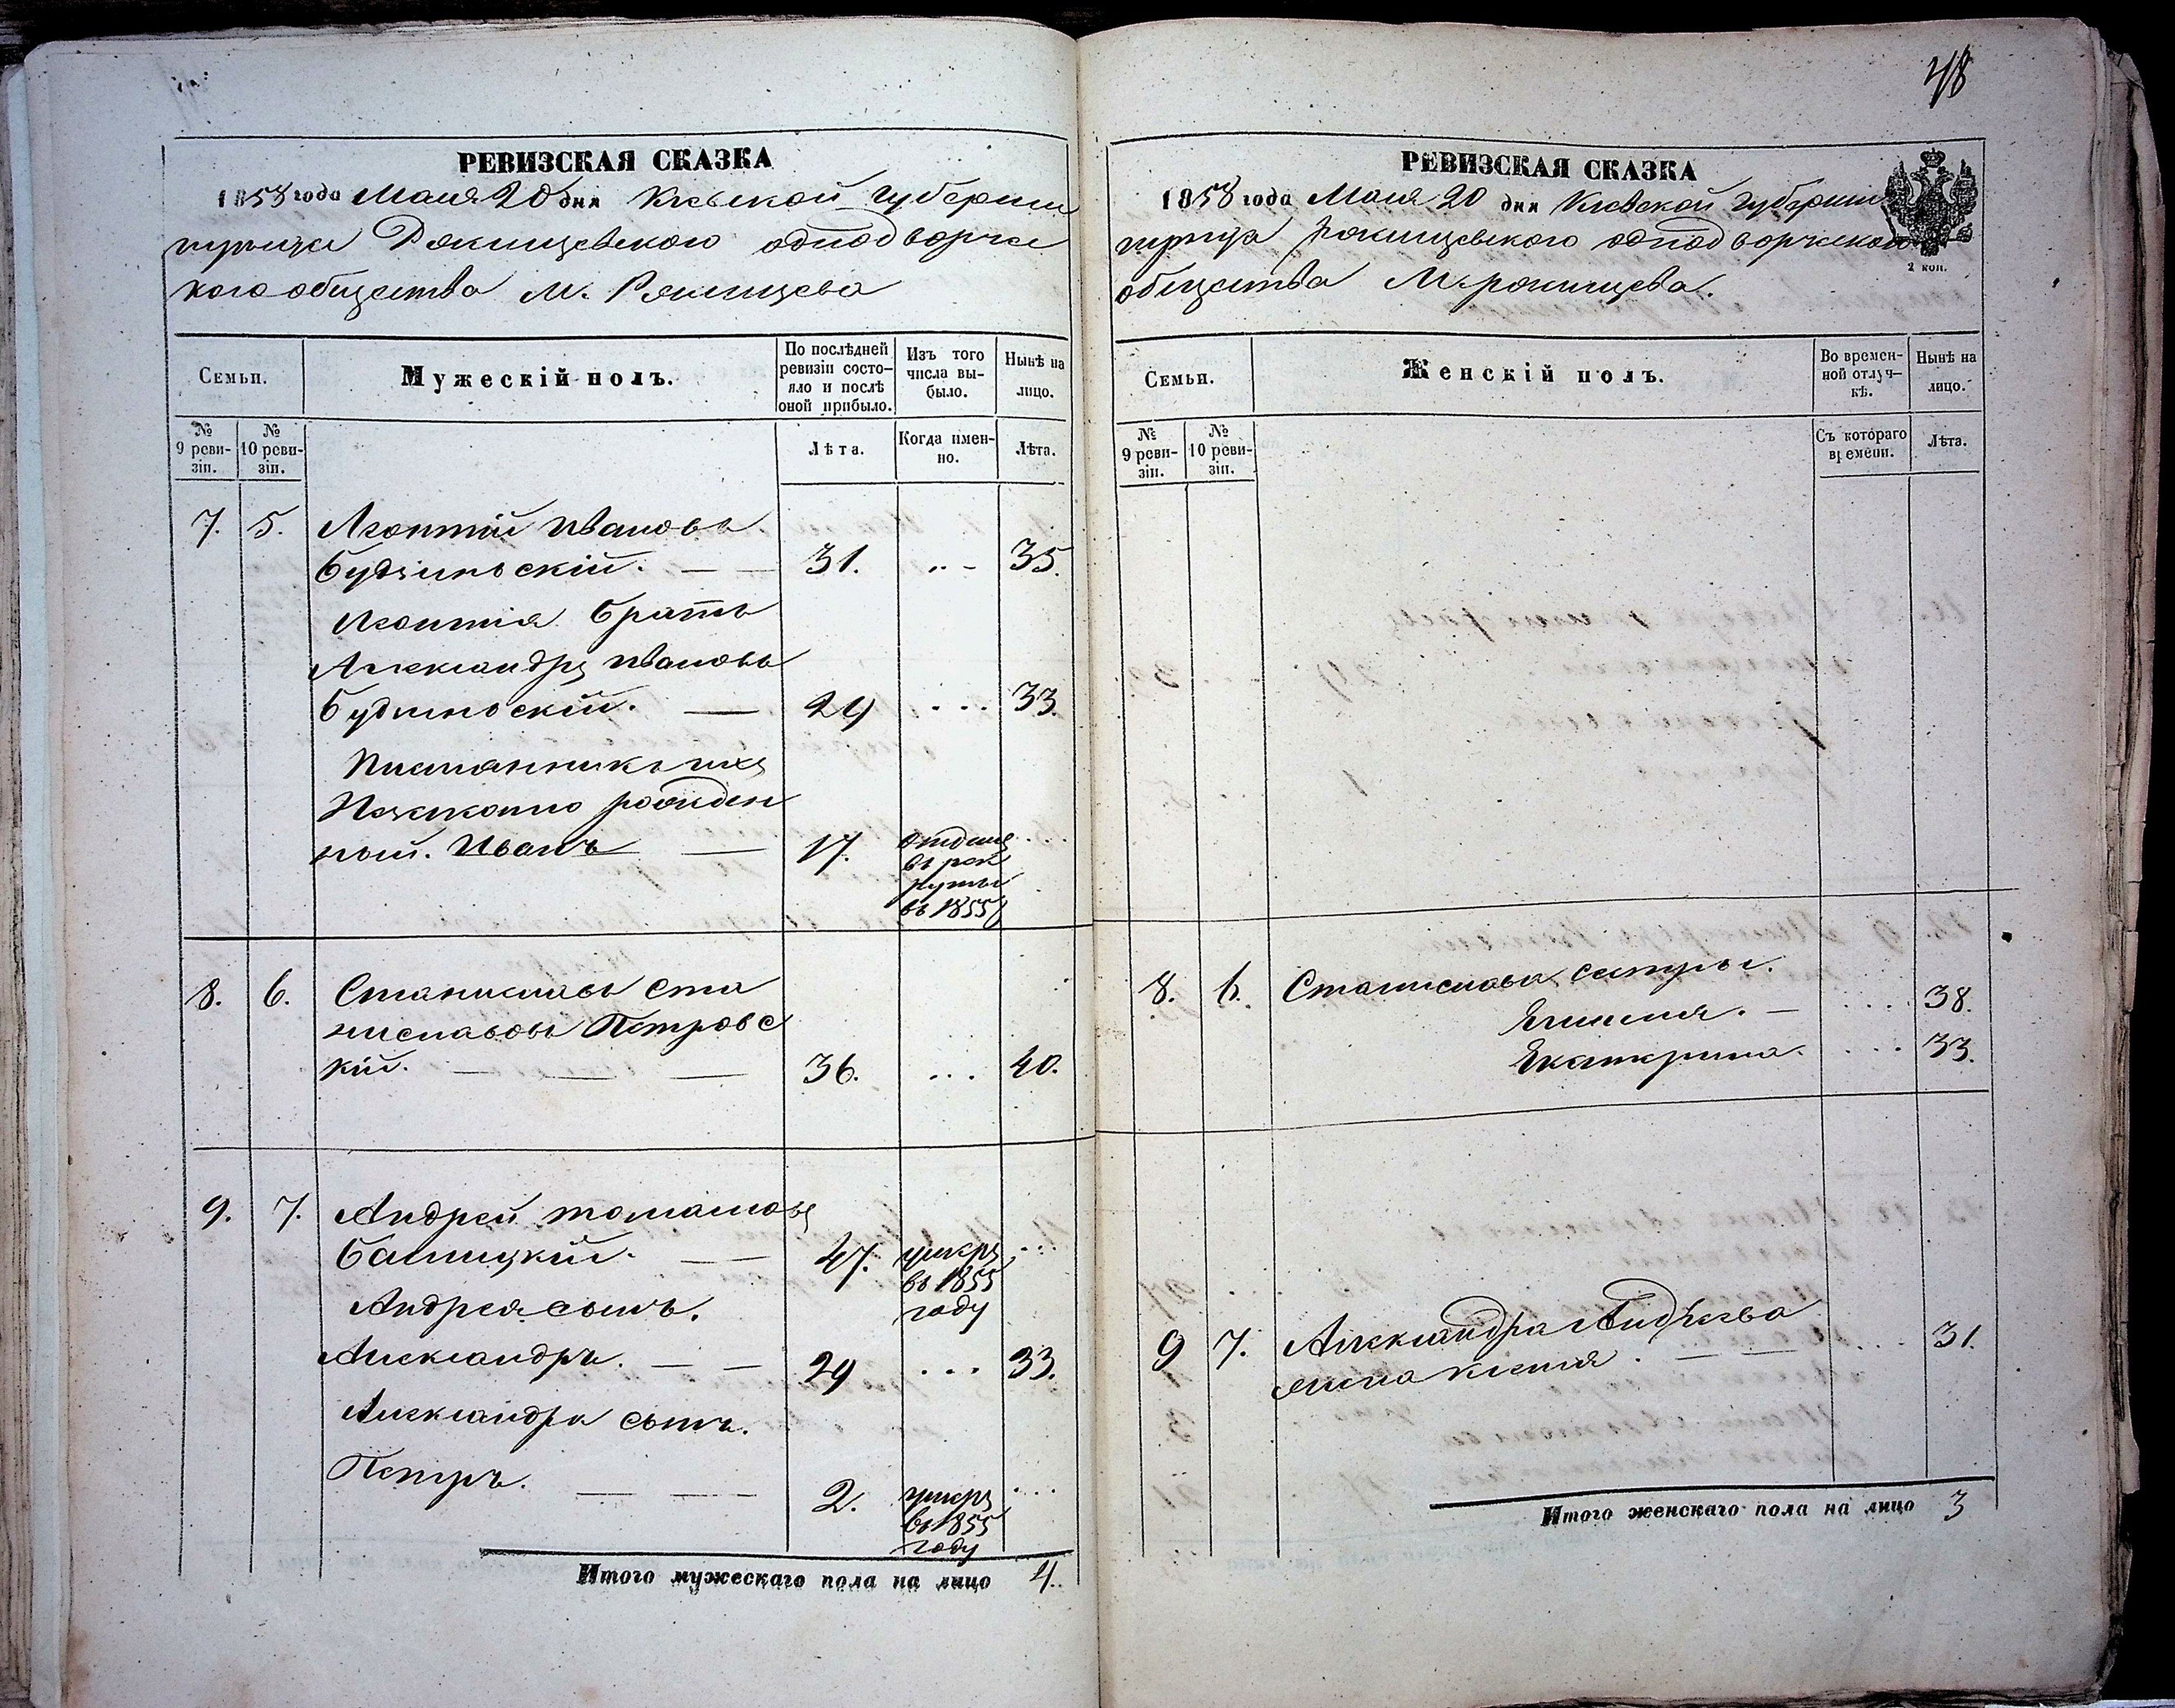 48
РЕВИЗСКАЯ СКАЗКА
1858 года Маія 20 дня Кіевской Губерніи
Ржищевскаго однодворчес
каго общества М. Ржищева
Семьи.
Мужескій полъ.
По послѣдней ревизіи состо-
яло и послѣ
оной прибыло.
Изъ того
числа вы-
было.
Нынѣ на
лицо.
№
9 реви-
зіи.
№
10 реви-
зіи.
Лѣта.
Когда имен-
но.
Лѣта.
7. 5. Леонтій Ивановъ
Будзинскій. 31. 35.
Леонтія братъ
Александръ Ивановъ
Будзинскій. 29 33.
ихъ
рожден
ный. Иванъ 17. отданъ
въ рек
руты
въ 1855
8. 6. Станиславъ Ста
ниславовъ Петровс
кій. 36. 40.
9. 7. Андрей Томашовъ
47. умеръ
въ 1855
году
Андрея сынъ.
Александръ. 29 33.
Александра сынъ.
Петръ. 2. умеръ
въ 1855
году
Итого мужескаго пола на лицо 4.
РЕВИЗСКАЯ СКАЗКА
1858 года Маія 20 дня Кіевской Губерніи
Ржищевскаго однодворческаго
общества М. Ржищева.
2 коп.
Семьи.
Женскій полъ.
Во времен-
ной отлуч-
кѣ.
Нынѣ на
лицо.
№
9 реви-
зіи.
№
10 реви-
зіи.
Съ котораго
времени.
Лѣта.
8. 6. Станислава сестры.
38.
Екатерина. 33.
9 7. Александра Андрѣева
жена 31.
Итого женскаго пола на лицо 3